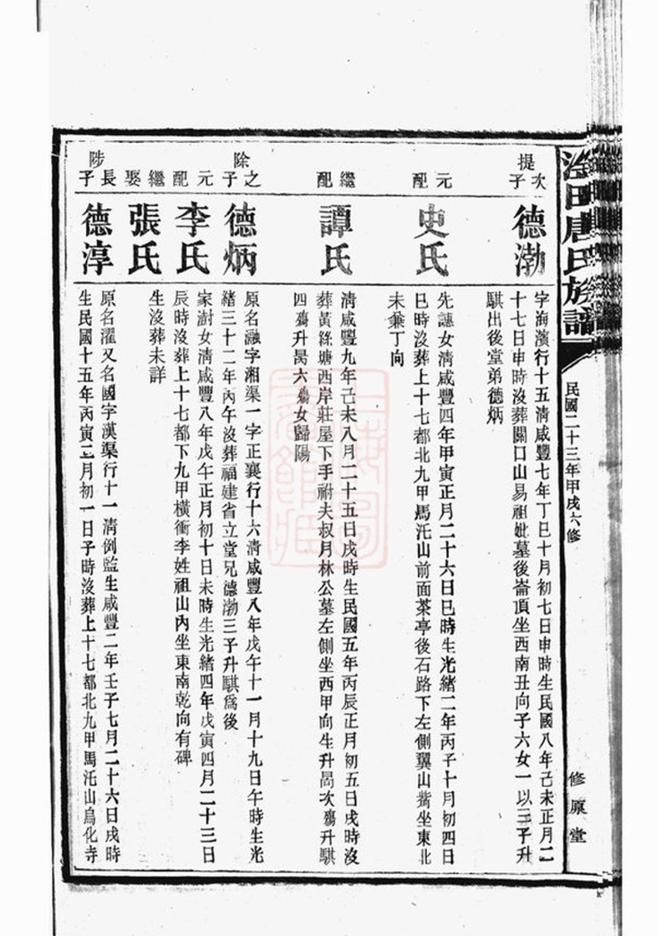 田唐氏族譜
民國二十三年甲戌六修
修原堂
提次子
德渤
字海濱行十五清咸豐七年丁巳十月初七日申時生民國八年己未正月二
十七日申時沒葬關口山易祖妣墓後崙頂坐西南丑向子六女一以三子升
騏出後堂弟德炳
元配
史氏
先謙女清咸豐四年甲寅正月二十六日巳時生光緒二年丙子十月初四日
巳時沒葬上十七都北九甲馬汑山前面茶亭後石路下左側翼山觜坐東北
未兼丁向
繼配
譚氏
清咸豐九年己未八月二十五日戌時生民國五年丙辰正月初五日戌時沒
葬黃絲塘西岸莊屋下手祔夫叔月林公墓左側坐西甲向生升昺次殤升騏
四殤升昺六殤女歸陽
除之子
德炳
原名融字湘渠一字正襄行十六清咸豐八年戊午十一月十九日午時生光
緒三十二年丙午沒葬福建省立堂兄德渤三子升騏為後
元配
李氏
家澍女清咸豐八年戊午正月初十日未時生光緒四年戊寅四月二十三日
辰時沒葬上十七都下九甲橫衝李姓祖山內坐東南乾向有碑
繼娶
張氏
生沒葬未詳
陟長子
德淳
原名濯又名國字漢渠行十一清例監生咸豐二年壬子七月二十六日戌時
生民國十五年丙寅二月初一日子時沒葬上十七都北九甲馬汑山烏化寺